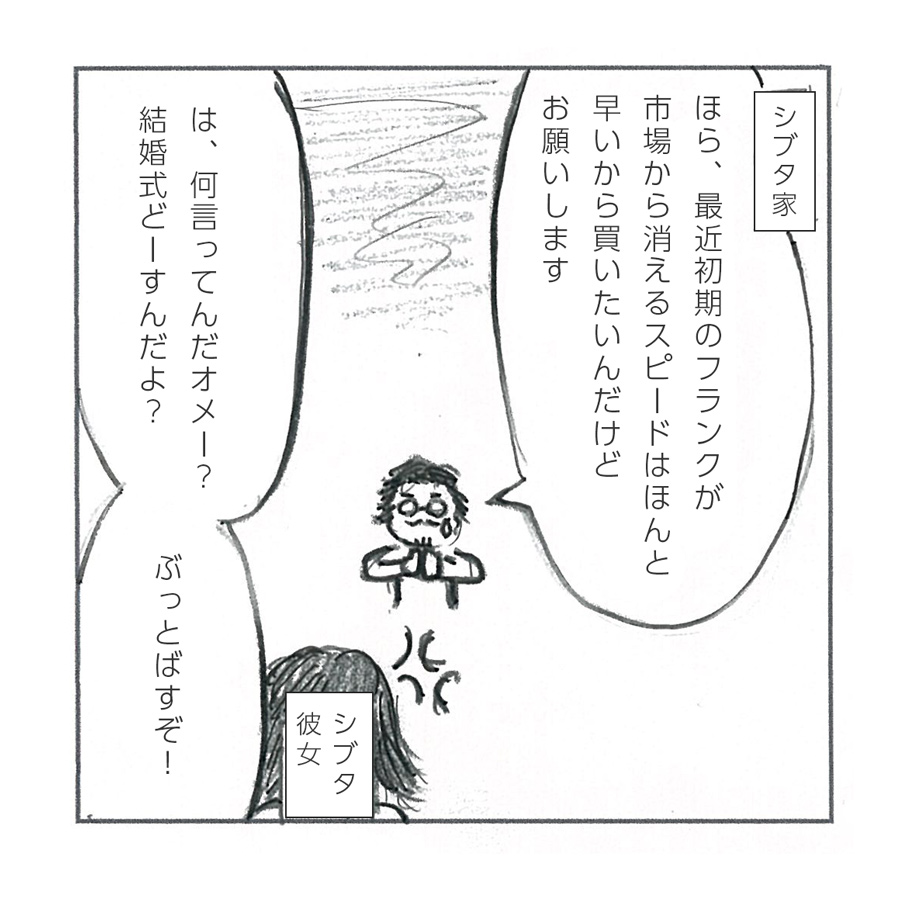 シブタ家
ほら、最近初期のフランクが
市場から消えるスピードはほんと
早いから買いたいんだけど
お願いします
は、何言ってんだオメー？
結婚式どーすんだよ？
ぶっとばすぞ！
シブタ
彼女